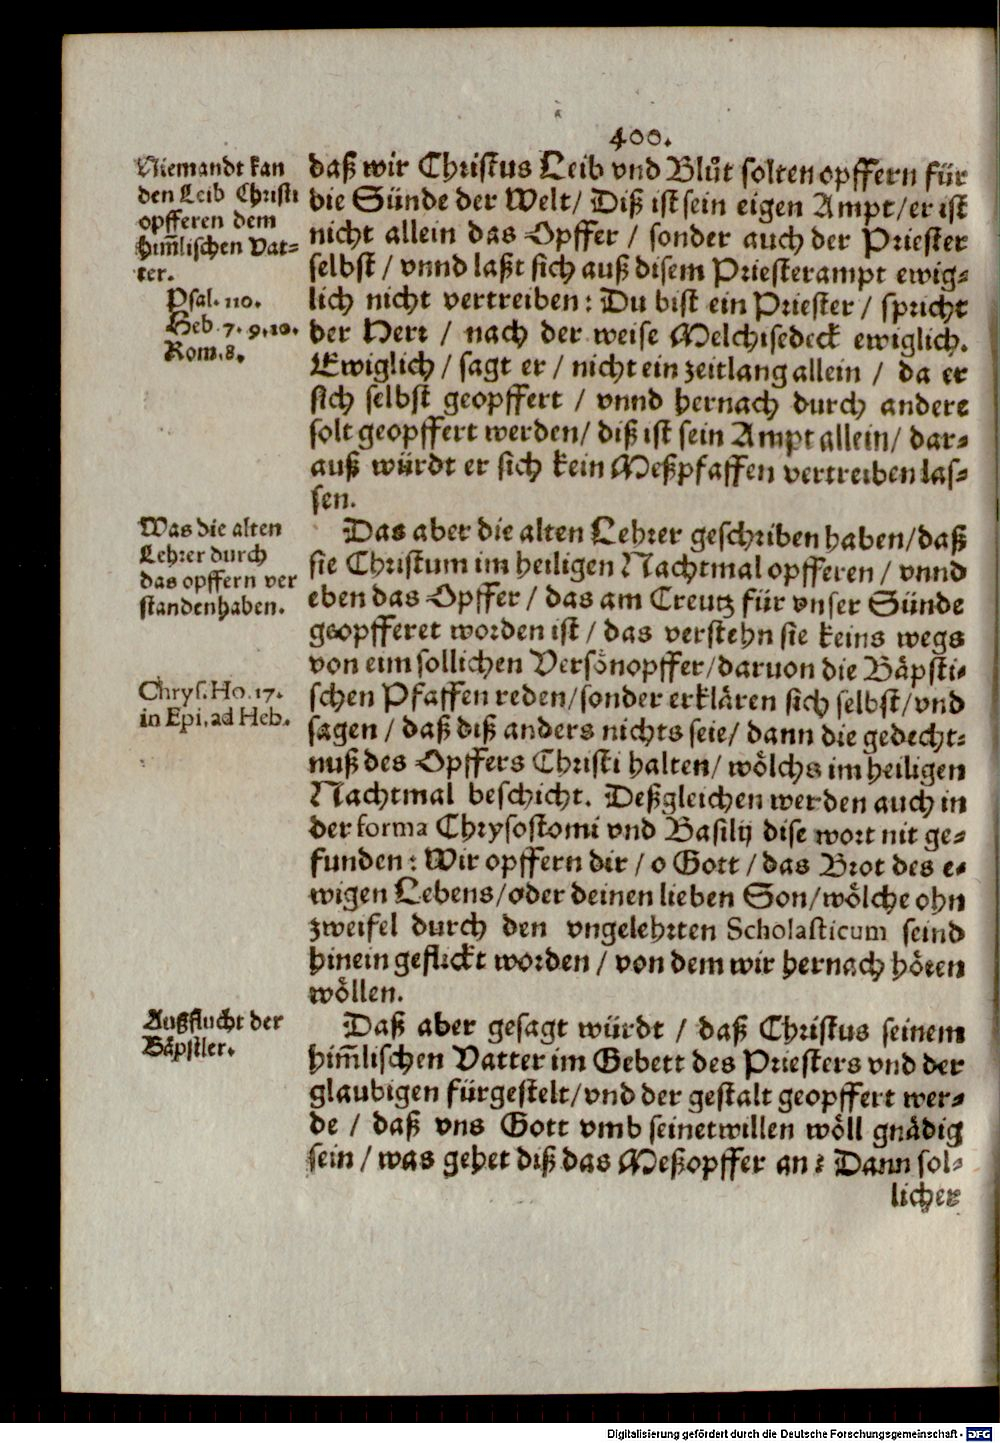 400.
Niemandt kan
den Leib Christi
opfferen dem
him̃lischen Vat-
ter.
Psal. 110.
Heb. 7. 9. 10.
Rom. 8.
daß wir Christus Leib vnd Blůt solten opffern für
die Sünde der Welt / Diß ist sein eigen Ampt / er ist
nicht allein das Opffer / sonder auch der Priester
selbst / vnnd laßt sich auß disem Priesterampt ewig-
lich nicht vertreiben : Du bist ein Priester / spricht
der Herr / nach der weise Melchisedeck ewiglich.
Ewiglich / sagt er / nicht ein zeitlang allein / da er
sich selbst geopffert / vnnd hernach durch andere
solt geopffert werden / diß ist sein Ampt allein / dar-
auß würdt er sich kein Meßpfaffen vertreiben las-
sen.
Was die alten
Lehrer durch
das opffern ver
standen haben.
Chrys. Ho. 17.
in Epi. ad Heb.
Das aber die alten Lehrer geschriben haben / daß
sie Christum im heiligen Nachtmal opfferen / vnnd
eben das Opffer / das am Creutz für vnser Sünde
geopfferet worden ist / das verstehn sie keins wegs
von eim sollichen Versönopffer / daruon die Bäpsti-
schen Pfaffen reden / sonder erklären sich selbst / vnd
sagen / daß diß anders nichts seie / dann die gedecht-
nuß des Opffers Christi halten / wölchs im heiligen
Nachtmal beschicht. Deßgleichen werden auch in
der forma Chrysostomi vnd Basilij dise wort nit ge-
funden : Wir opffern dir / o Gott / das Brot des e-
wigen Lebens / oder deinen lieben Son / wölche ohn
zweifel durch den vngelehrten Scholasticum seind
hinein geflickt worden / von dem wir hernach hören
wöllen.
Außflucht der
Bäpstler.
Daß aber gesagt würdt / daß Christus seinem
him̃lischen Vatter im Gebett des Priesters vnd der
glaubigen fürgestelt / vnd der gestalt geopffert wer-
de / daß vns Gott vmb seinetwillen wöll gnädig
sein / was gehet diß das Meßopffer an ? Dann sol-
licher
Digitalisierung gefördert durch die Deutsche Forschungsgemeinschaft - DFG